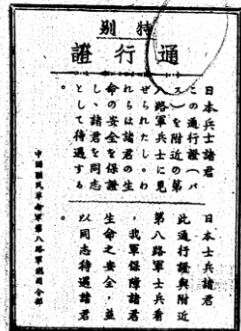 特別
通行證
日本兵士諸君
この通行證(パ
ス)を附近の第
八路軍兵士に見
ぜられたし。わ
れらは諸君の生
命の安全を保證
し、諸君を同志
として待遇する
。
日本士兵諸君
此通行證與附近
第八路軍士兵看
,我軍保障諸君
生命之安全,並
以同志待遇諸君
。
中國國民革命軍第八路軍總司令部